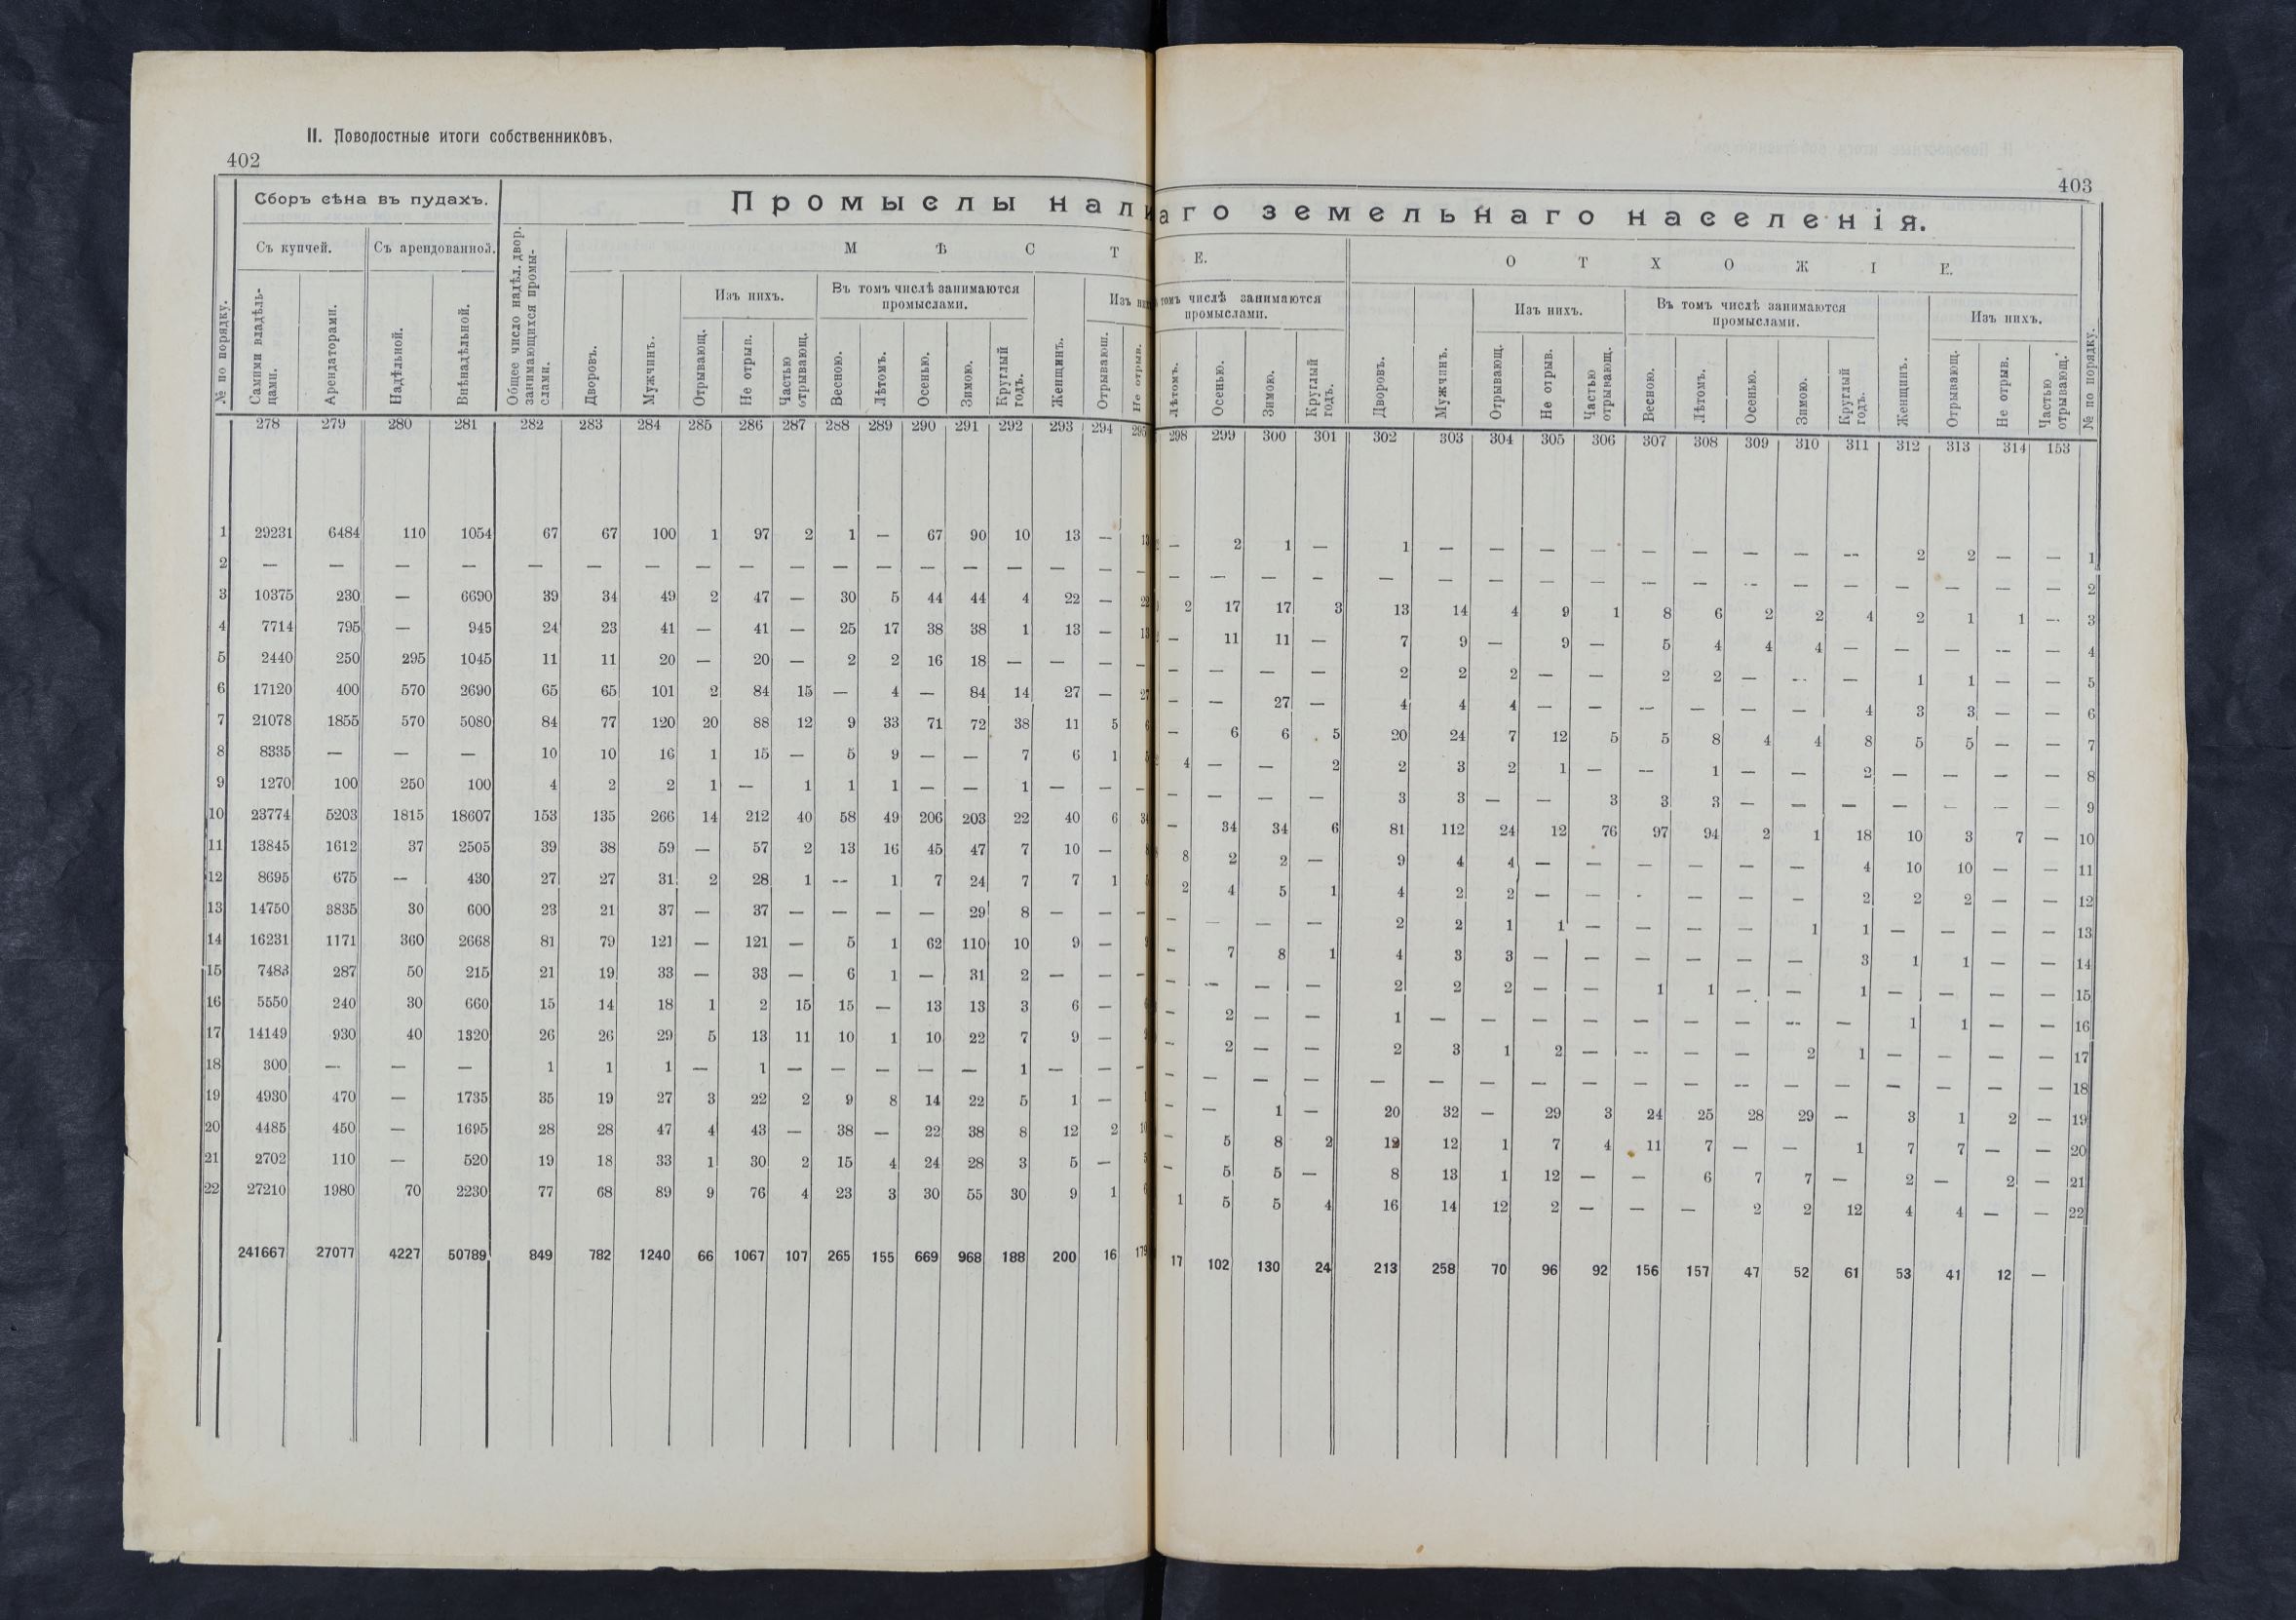 II. Поволостные итоги собственниковъ.
402
403
Сборъ сѣна въ пудахъ.
Промыслы нали
аго земельнаго населенія.
Съ купчей. Съ арендованной. М Ѣ С Т
Е. О Т Х О Ж І Е.
Изъ нихъ. Въ томъ числѣ занимаются промыслами.
томъ числѣ занимаются промыслами. Изъ нихъ. Въ томъ числѣ занимаются промыслами. Изъ нихъ.
№ по порядку. Самими владѣльцами. Арендаторами. Надѣльной. Внѣнадѣльной. Общее число надѣл. двор. занимающихся промыслами. Дворовъ. Мужчинъ. Отрывающ. Не отрыв. Частью отрывающ. Весною. Лѣтомъ. Осенью. Зимою. Круглый годъ. Женщинъ. Отрывающ. Не отрыв.
Лѣтомъ. Осенью. Зимою. Круглый годъ. Дворовъ. Мужчинъ. Отрывающ. Не отрыв. Частью отрывающ. Весною. Лѣтомъ. Осенью. Зимою. Круглый годъ. Женщинъ. Отрывающ. Не отрыв. Частью отрывающ. № по порядку.
278 279 280 281 282 283 284 285 286 287 288 289 290 291 292 293 294 295
298 299 300 301 302 303 304 305 306 307 308 309 310 311 312 313 314 153
1 29231 6484 110 1054 67 67 100 1 97 2 1 — 67 90 10 13 —
— 2 1 — 1 — — — — — — — — — 2 2 — — 1
2 — — — — — — — — — — — — — — — — — —
— — — — — — — — — — — — — — — — — — 2
3 10375 230 — 6690 39 34 49 2 47 — 30 5 44 44 4 22 —
2 17 17 3 13 14 4 9 1 8 6 2 2 4 2 1 1 — 3
4 7714 795 — 945 24 23 41 — 41 — 25 17 38 38 1 13 —
— 11 11 — 7 9 — 9 — 5 4 4 4 — — — — — 4
5 2440 250 295 1045 11 11 20 — 20 — 2 2 16 18 — — — —
— — — — 2 2 2 — — 2 2 — — — 1 1 — — 5
6 17120 400 570 2690 65 65 101 2 84 15 — 4 — 84 14 27 —
— — 27 — 4 4 4 — — — — — — 4 3 3 — — 6
7 21078 1855 570 5080 84 77 120 20 88 12 9 33 71 72 38 11 5
— 6 6 5 20 24 7 12 5 5 8 4 4 8 5 5 — — 7
8 8335 — — — 10 10 16 1 15 — 5 9 — — 7 6 1
4 — — 2 2 3 2 1 — — 1 — — 2 — — — — 8
9 1270 100 250 100 4 2 2 1 — 1 1 1 — — 1 — — —
— — — — 3 3 — — 3 3 3 — — — — — — — 9
10 23774 5203 1815 18607 153 135 266 14 212 40 58 49 206 203 22 40 6
— 34 34 6 81 112 24 12 76 97 94 2 1 18 10 3 7 — 10
11 13845 1612 37 2505 39 38 59 — 57 2 13 16 45 47 7 10 —
8 2 2 — 9 4 4 — — — — — — 4 10 10 — — 11
12 8695 675 — 430 27 27 31 2 28 1 — 1 7 24 7 7 1
2 4 5 1 4 2 2 — — — — — — 2 2 2 — — 12
13 14750 3835 30 600 23 21 37 — 37 — — — — 29 8 — — —
— — — — 2 2 1 1 — — — — 1 1 — — — — 13
14 16231 1171 360 2668 81 79 121 — 121 — 5 1 62 110 10 9 —
— 7 8 1 4 3 3 — — — — — — 3 1 1 — — 14
15 7483 287 50 215 21 19 33 — 33 — 6 1 — 31 2 — — —
— — — — 2 2 2 — — 1 1 — — 1 — — — — 15
16 5550 240 30 660 15 14 18 1 2 15 15 — 13 13 3 6 —
— 2 — — 1 — — — — — — — — — 1 1 — — 16
17 14149 930 40 1320 26 26 29 5 13 11 10 1 10 22 7 9 —
— 2 — — 2 3 1 2 — — — — 2 1 — — — — 17
18 300 — — — 1 1 1 — 1 — — — — — 1 — — —
— — — — — — — — — — — — — — — — — — 18
19 4930 470 — 1735 35 19 27 3 22 2 9 8 14 22 5 1 —
— — 1 — 20 32 — 29 3 24 25 28 29 — 3 1 2 — 19
20 4485 450 — 1695 28 28 47 4 43 — 38 — 22 38 8 12 2
— 5 8 2 12 12 1 7 4 11 7 — — 1 7 7 — — 20
21 2702 110 — 520 19 18 33 1 30 2 15 4 24 28 3 5 —
— 5 5 — 8 13 1 12 — — 6 7 7 — 2 — 2 — 21
22 27210 1980 70 2230 77 68 89 9 76 4 23 3 30 55 30 9 1
1 5 5 4 16 14 12 2 — — — 2 2 12 4 4 — — 22
241667 27077 4227 50789 849 782 1240 66 1067 107 265 155 669 968 188 200 16 179
17 102 130 24 213 258 70 96 92 156 157 47 52 61 53 41 12 —